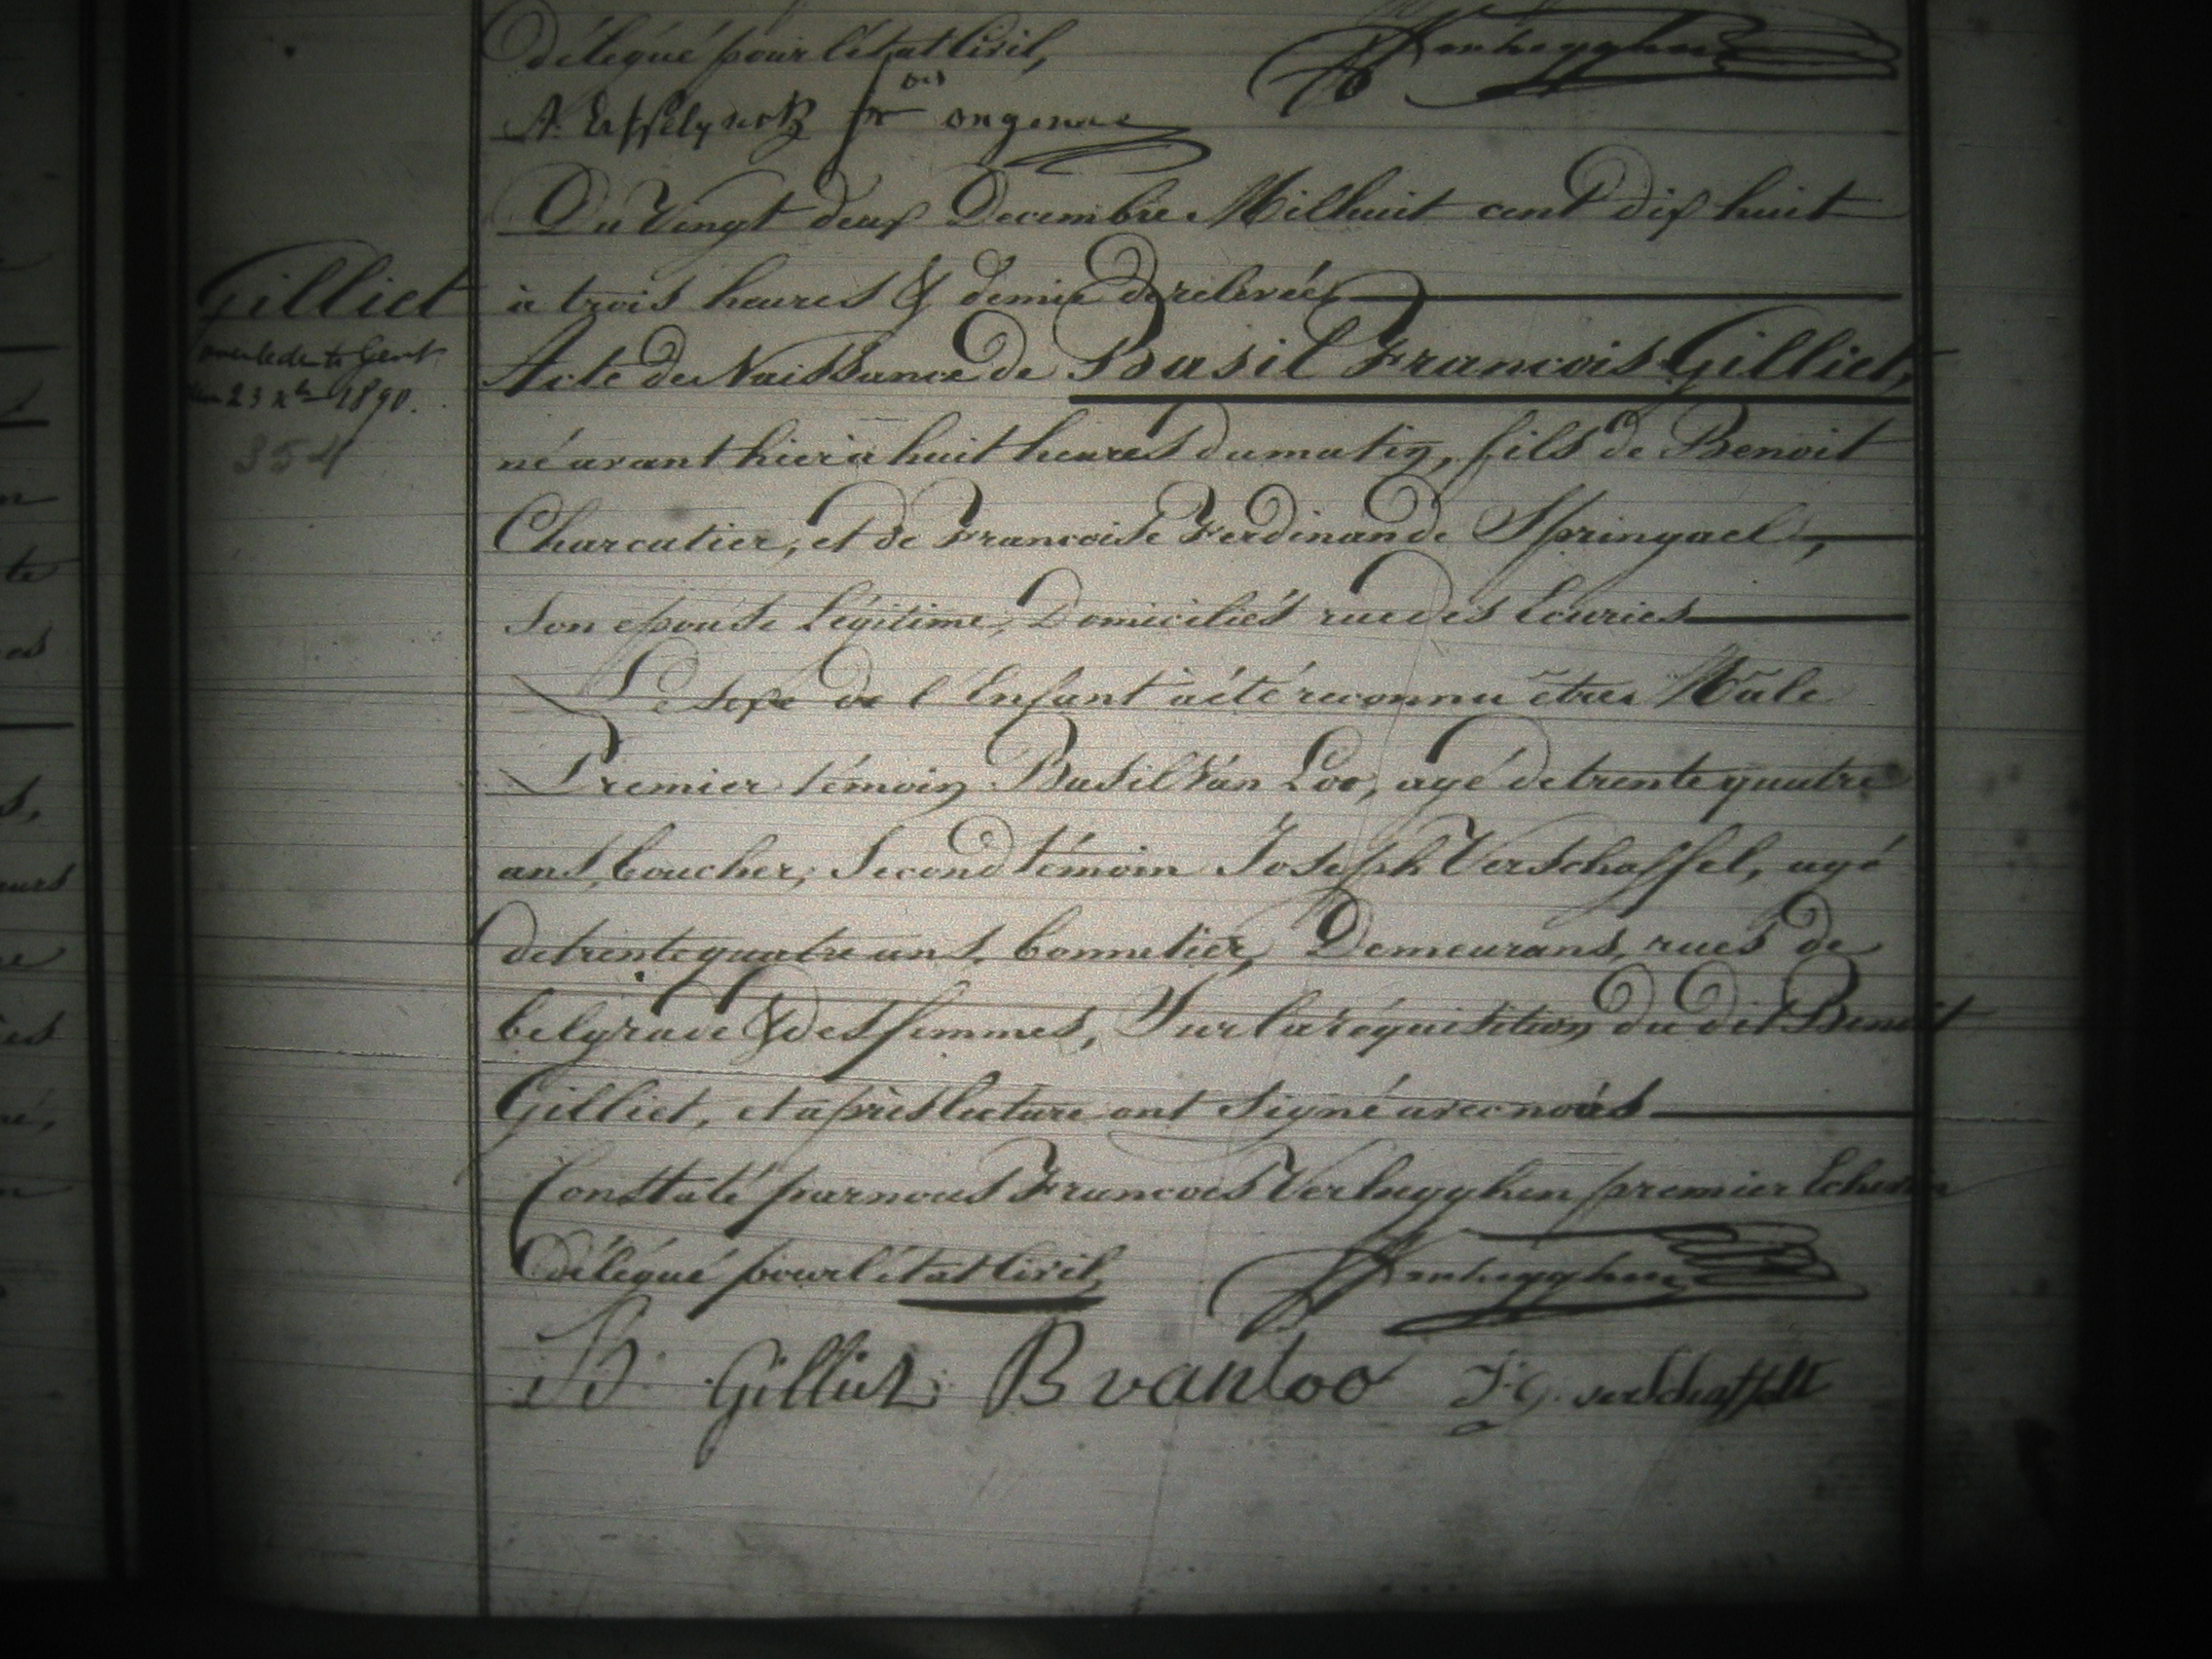 délégué pour l'état Civil,
ongenae
Du Vingt deux Decembre Mil huit cent dix huit
à trois heures & demie de relevée
Gilliet
Acte de Naissance de Basil Francois Gilliet,
overlede te Gent
den 23 xbr 1890.
354
né avant hier à huit heures du matin, fils de Benoit
Charcutier, et de Francoise Ferdinande Springael,
son epouse Légitime, Domiciliés rue des Ecuries
Le sexe de l'Enfant à été reconnu être Mâle
Premier témoin Basil Van Loo, agé de trente quatre
ans, boucher, Second témoin Joseph Verschaffel, agé
de trente quatre ans, bonnetier, Demeurans, rues de
belgrade & des femmes, Sur la réquisition du dit Benoit
Gilliet, et après lecture ont signé avec nous
Constaté par nous Francois Verhegghen premier Echevin
délégué pour l'état Civil,
B. Gilliet B vanloo J. G. verschaffelt